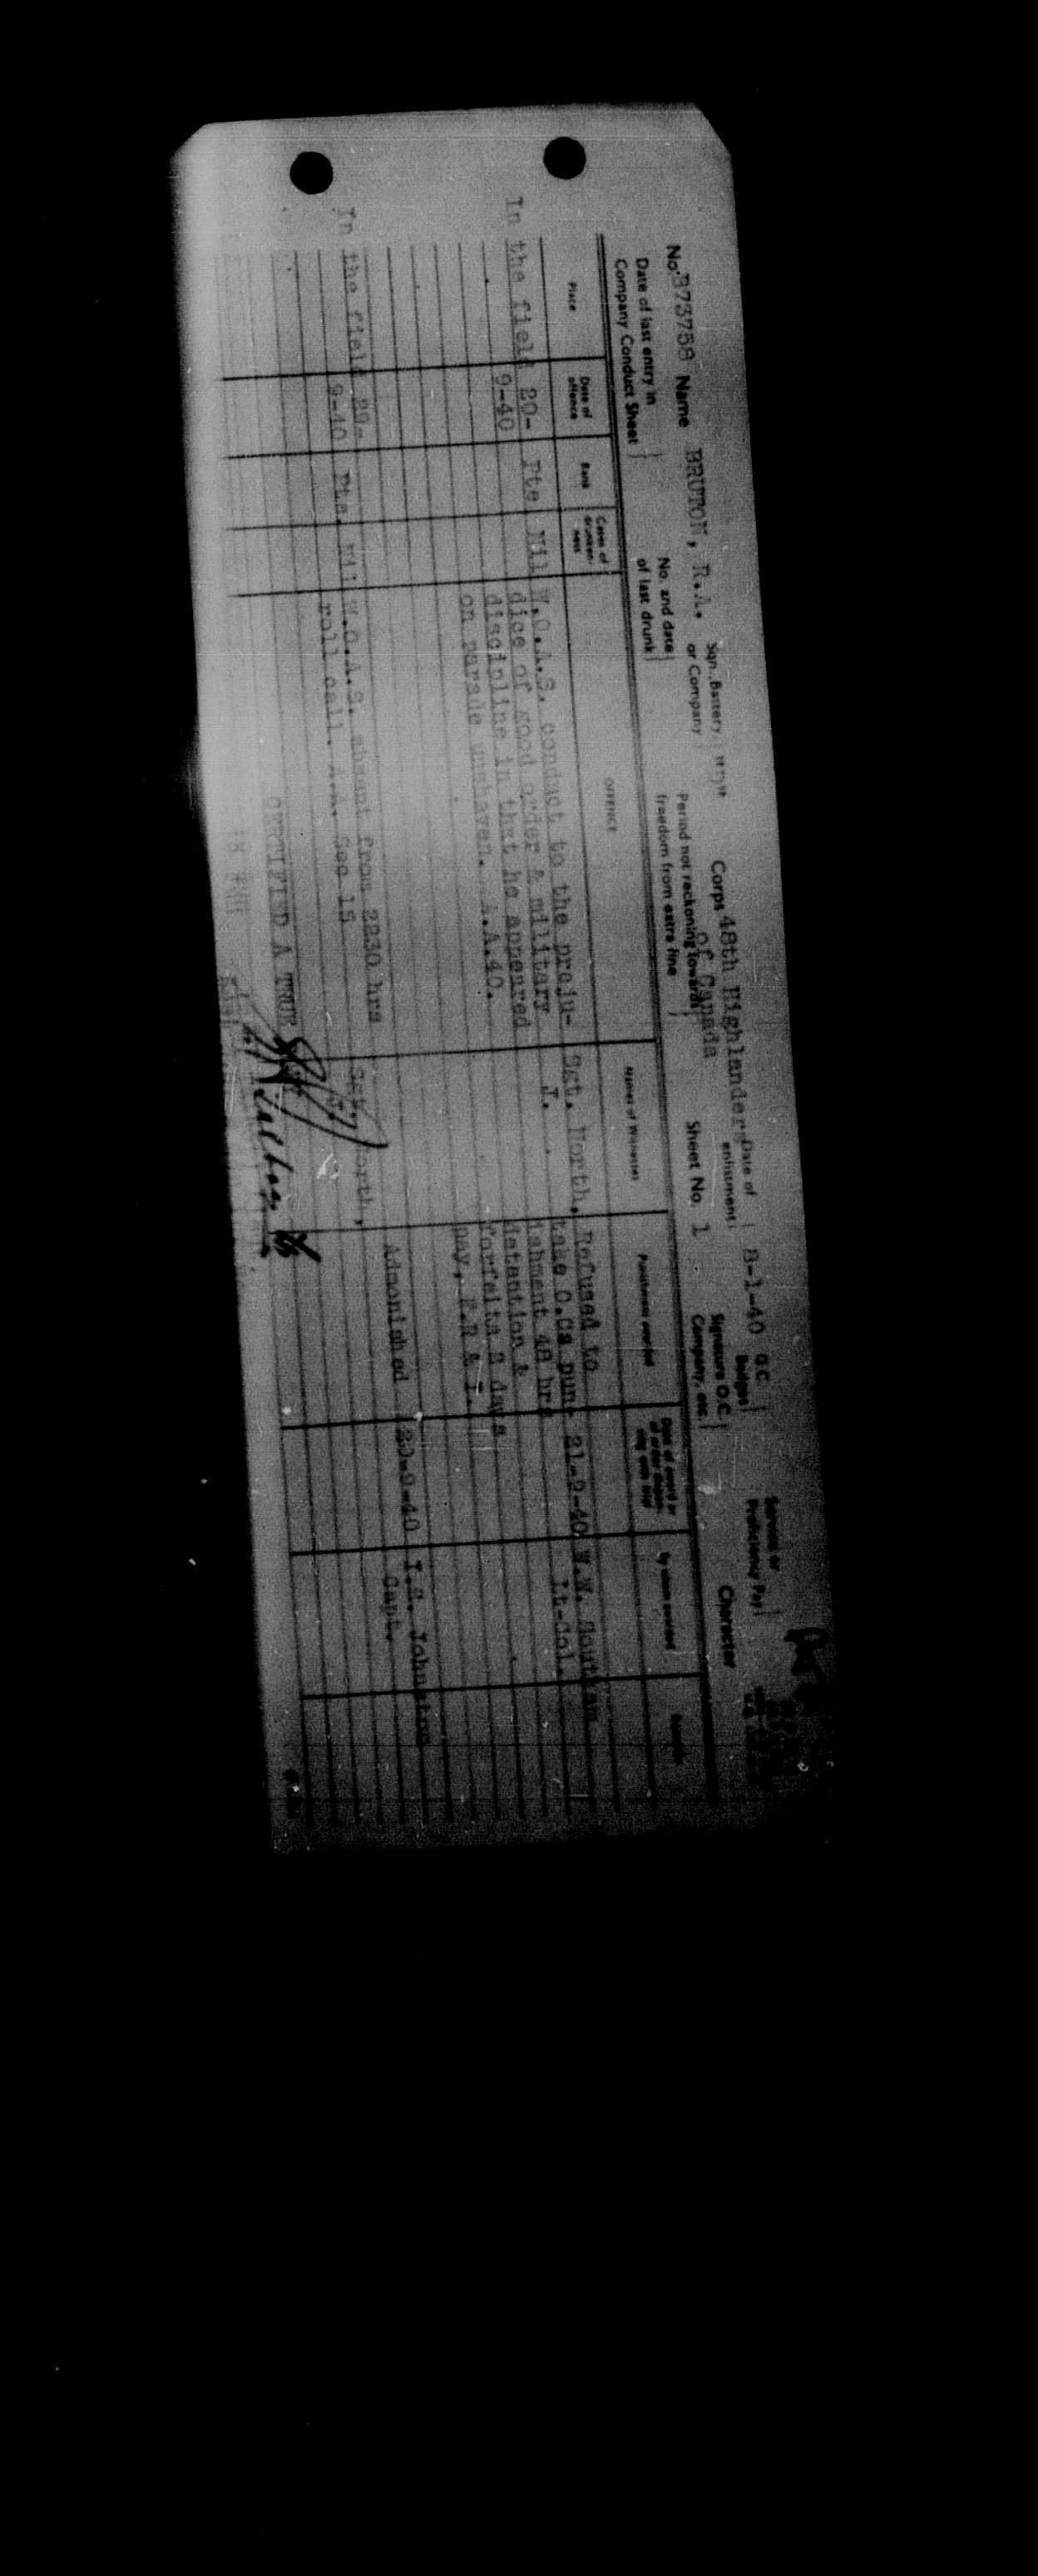 No. B73758 Name BRUTON, R.A. Sqn., Battery, or Company "D" Corps 48th Highlanders of Canada Date of enlistment 8-1-40 G.C. Badges Service or Proficiency Pay
Date of last entry in Company Conduct Sheet No. and date of last drunk Period not reckoning towards freedom from extra fine Sheet No. 1 Signature O.C. Company, etc. Character
Place Date of offence Rank Cases of drunkenness OFFENCE Names of Witnesses Punishment awarded By whom awarded
In the field 20- Pte Nil W.O.A.S. conduct to the preju- Sgt. North, Refused to
9-40 dice of good order & military J. take O.Cs pun- 21-9-40 W.W. Southam
discipline in that he appeared ishment 48 hrs Lt-Col.
on parade unshaven. A.A.40. detention &
forfeits 2 days
pay,
In the field 29- Pte. Nil W.O.A.S. absent from 2230 hrs Sgt. North, Admonished I.S. Johnston
9-40 roll call. A.A. Sec 15 J. Capt.
CERTIFIED A TRUE